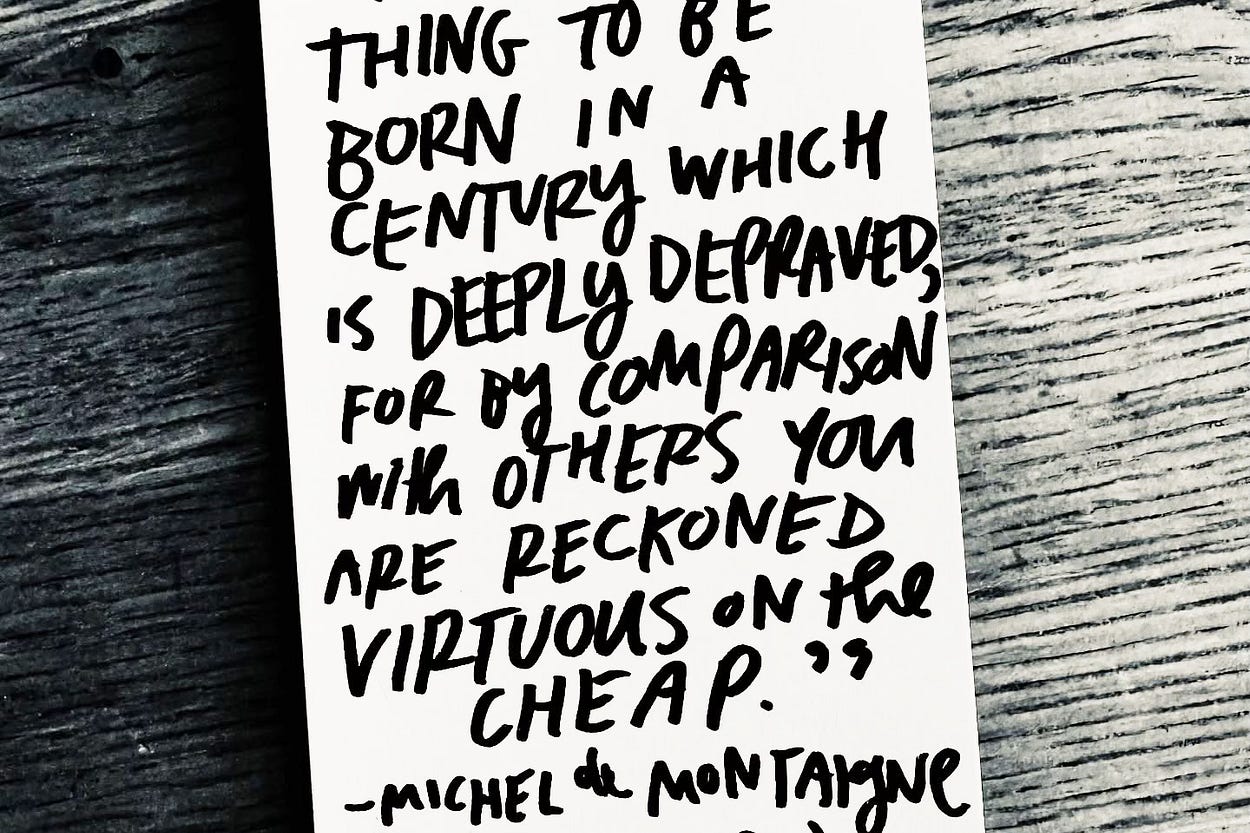 THING TO BE
BORN IN A
CENTURY WHICH
IS DEEPLY DEPRAVED,
FOR BY COMPARISON
with OTHERS YOU
ARE RECKONED
VIRTUOUS ON the
CHEAP."
-MICHEL de MONTAIGNE